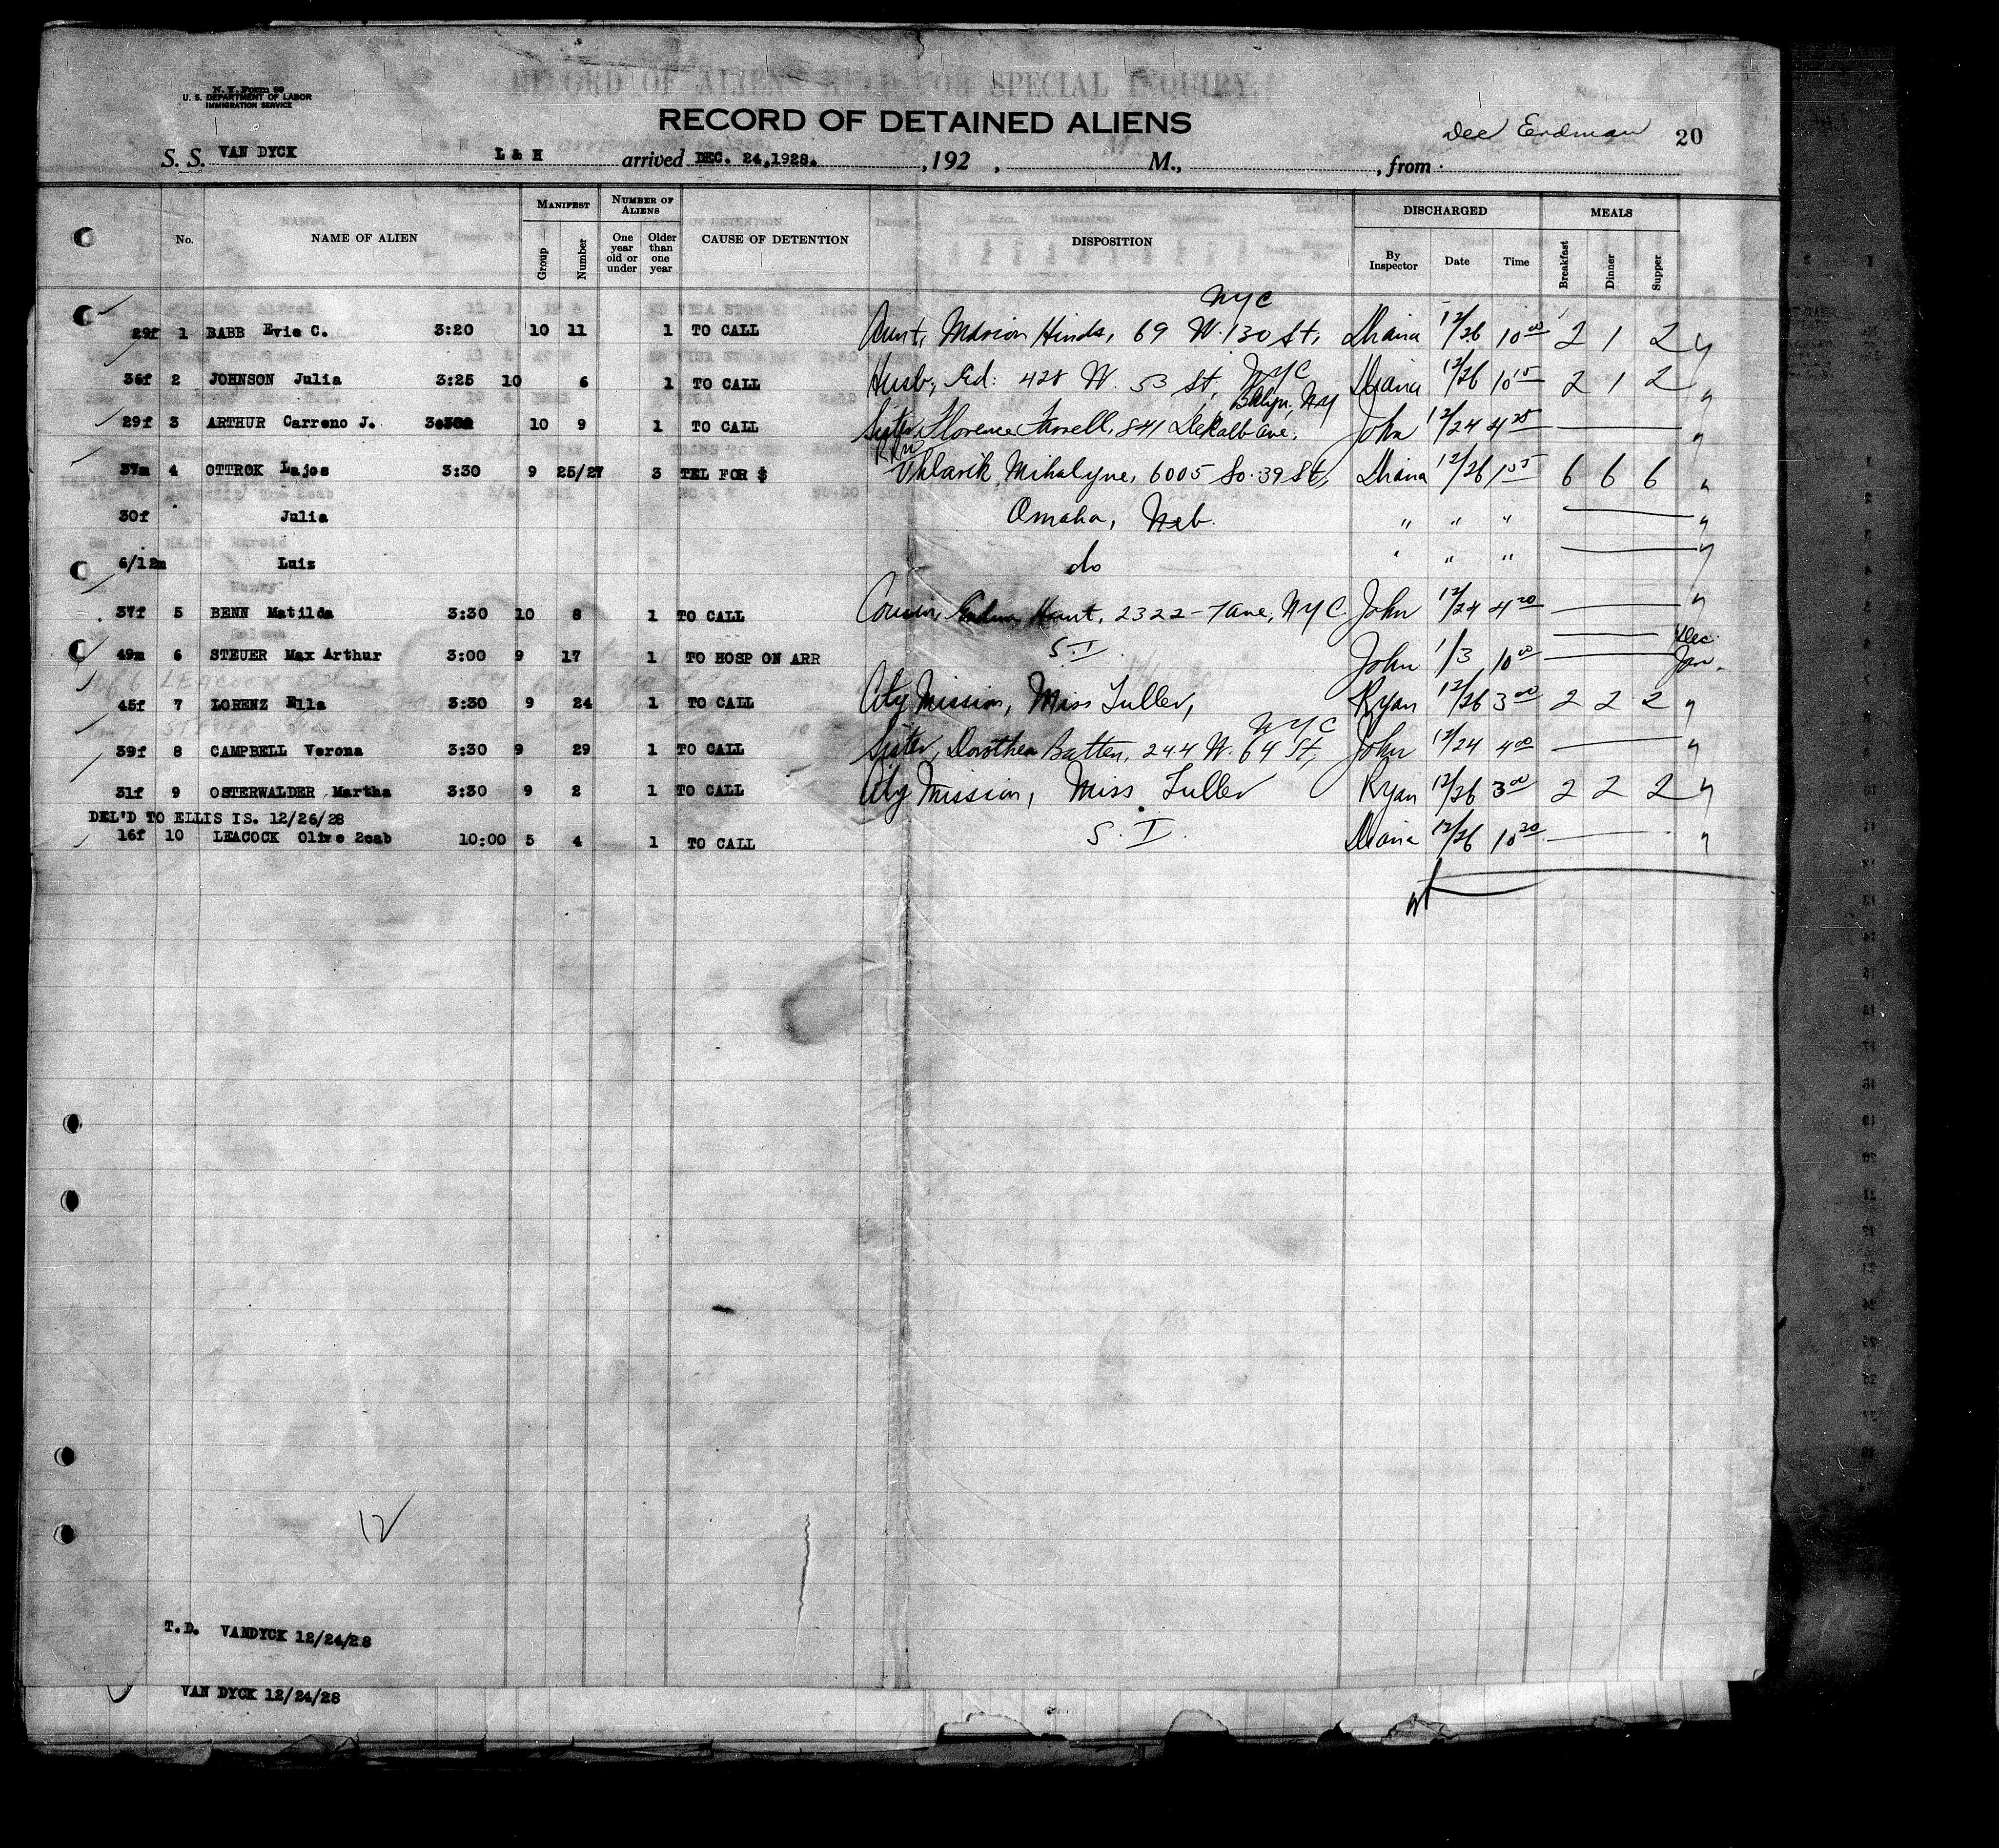 RECORD OF ALIENS HELD FOR SPECIAL INQUIRY.
N. Y. Form 99
U. S. DEPARTMENT OF LABOR
IMMIGRATION SERVICE
RECORD OF DETAINED ALIENS
Dec Erdman 20
S. S. VAN DYCK L & H arrived DEC. 24,1928. ,192 , M., , from
MANIFEST NUMBER OF ALIENS DISCHARGED MEALS
No. NAME OF ALIEN Group Number One year old or under Older than one year CAUSE OF DETENTION DISPOSITION By Inspector Date Time Breakfast Dinner Supper
NYC
29f 1 BABB Evie C. 3:20 10 11 1 TO CALL Aunt, Marion Hinds, 69 W. 130 St, 12/26 10 00 2 1 2 "
36f 2 JOHNSON Julia 3:25 10 6 1 TO CALL Husb, Ed: 428 W. 53 St, NYC 12/26 10 15 2 1 2 "
Bklyn, NY
29f 3 ARTHUR Carreno J. 10 9 1 TO CALL Sister, Florence Farrell, 841 DeKalb Ave, John 12/24 4 25 "
37m 4 OTTROK Lajos 3:30 9 25/27 3 TEL FOR $ Mihalyne, 6005 So. 39 St, 12/26 6 6 6 "
30f Julia Omaha, Neb. " " " "
6/12m Luiz do " " " "
37f 5 BENN Matilda 3:30 10 8 1 TO CALL Cousin, Hunt, 2322-7 ave, NYC John 12/24 4 20 "
49m 6 STEUER Max Arthur 3:00 9 17 1 TO HOSP ON ARR S.I. John 1/3 10 00 Dec. Jan.
45f 7 LORENZ Ella 3:30 9 24 1 TO CALL City Mission, Miss Fuller, Ryan 12/26 3 00 2 2 2 "
NYC
39f 8 CAMPBELL Verona 3:30 9 29 1 TO CALL Sister, Dorothea Batten, 244 W. 64 St, John 12/24 4 00 "
31f 9 OSTERWALDER Martha 3:30 9 2 1 TO CALL City Mission, Miss Fuller Ryan 12/26 3 00 2 2 2 "
DEL'D TO ELLIS IS. 12/26/28
16f 10 LEACOCK Olive 2cab 10:00 5 4 1 TO CALL S. I. 12/26 10 30 "
12
T.D. VANDYCK 12/24/28
VAN DYCK 12/24/28